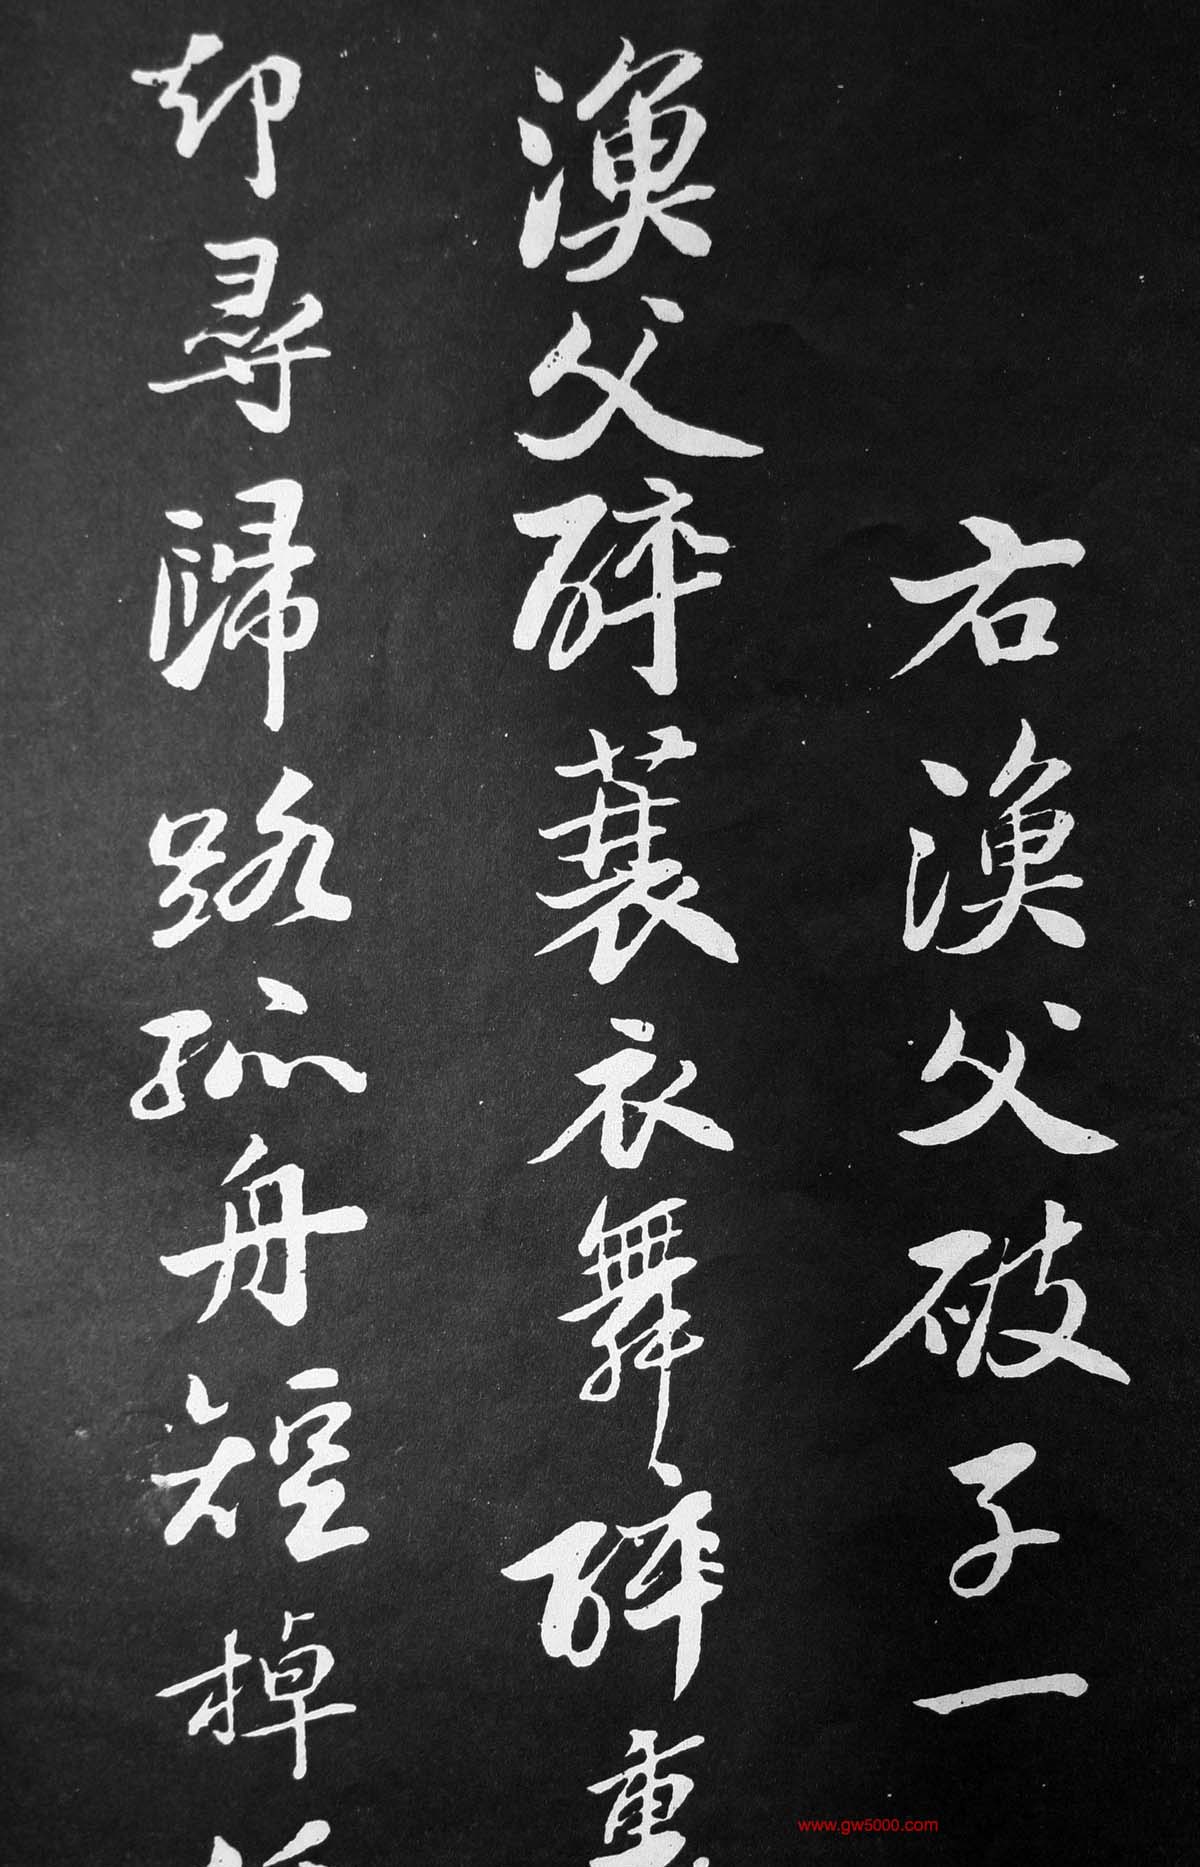 右漁父破子一
漁父醉蓑衣舞醉
却尋歸路孤舟短棹
www.gw5000.com